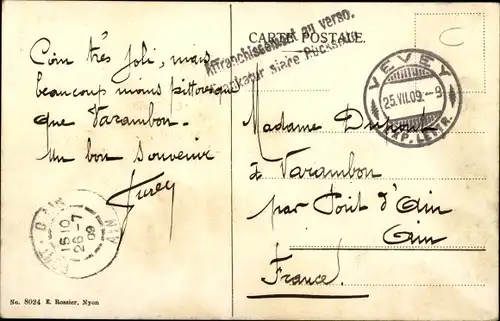 CARTE POSTALE.
Affranchissement au verso.
Frankatur siehe Rückseite
C
VEVEY
25.VII.09.-9
EXP. LETTR.
Coin très joli, mais
beaucoup moins pittoresque
que Varambon.
Un bon souvenir
Madame Dupont
à Varambon
par Pont d'Ain
Ain
France.
PONT-D'AIN
15 10
26-7
09
AIN
No. 8024 E. Rossier, Nyon